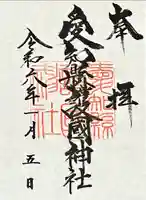 奉拝
愛知縣護國神社
令和六年一月五日